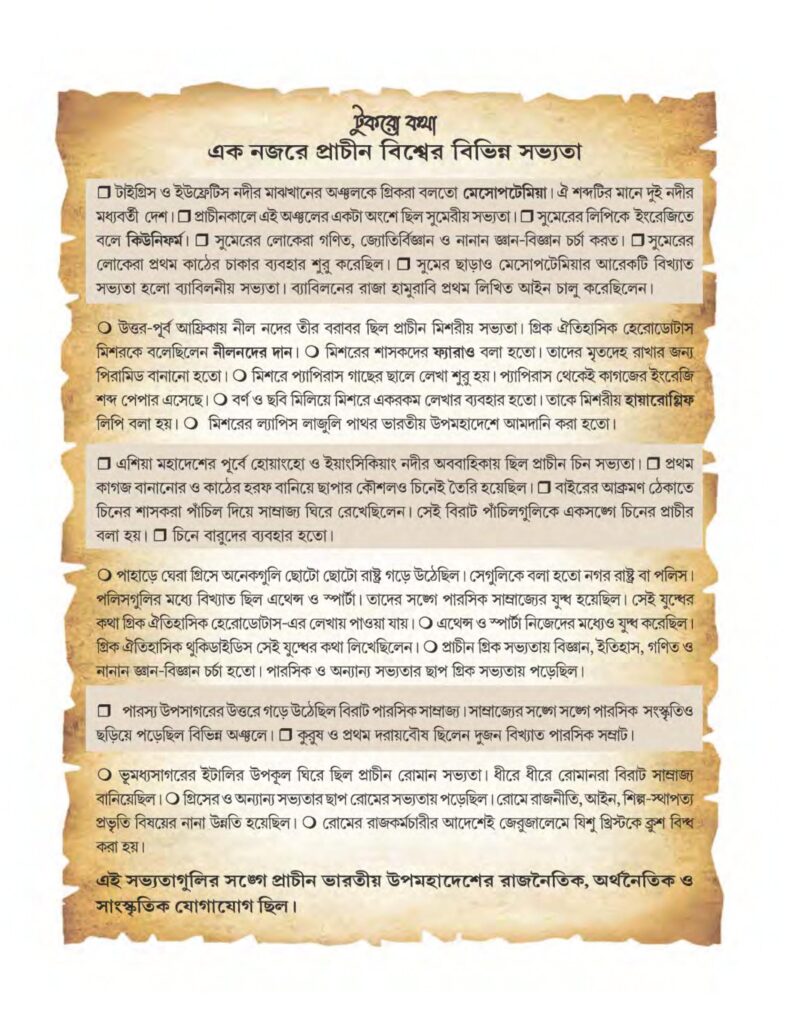 টুকরো কথা
এক নজরে প্রাচীন বিশ্বের বিভিন্ন সভ্যতা
❒ টাইগ্রিস ও ইউফ্রেটিস নদীর মাঝখানের অঞ্চলকে গ্রিকরা বলতো মেসোপটেমিয়া। ঐ শব্দটির মানে দুই নদীর
মধ্যবর্তী দেশ। ❒ প্রাচীনকালে এই অঞ্চলের একটা অংশে ছিল সুমেরীয় সভ্যতা। ❒ সুমেরের লিপিকে ইংরেজিতে
বলে কিউনিফর্ম। ❒ সুমেরের লোকেরা গণিত, জ্যোতির্বিজ্ঞান ও নানান জ্ঞান-বিজ্ঞান চর্চা করত। ❒ সুমেরের
লোকেরা প্রথম কাঠের চাকার ব্যবহার শুরু করেছিল। ❒ সুমের ছাড়াও মেসোপটেমিয়ার আরেকটি বিখ্যাত
সভ্যতা হলো ব্যাবিলনীয় সভ্যতা। ব্যাবিলনের রাজা হামুরাবি প্রথম লিখিত আইন চালু করেছিলেন।
❍ উত্তর-পূর্ব আফ্রিকায় নীল নদের তীর বরাবর ছিল প্রাচীন মিশরীয় সভ্যতা। গ্রিক ঐতিহাসিক হেরোডোটাস
মিশরকে বলেছিলেন নীলনদের দান। ❍ মিশরের শাসকদের ফ্যারাও বলা হতো। তাদের মৃতদেহ রাখার জন্য
পিরামিড বানানো হতো। ❍ মিশরে প্যাপিরাস গাছের ছালে লেখা শুরু হয়। প্যাপিরাস থেকেই কাগজের ইংরেজি
শব্দ পেপার এসেছে। ❍ বর্ণ ও ছবি মিলিয়ে মিশরে একরকম লেখার ব্যবহার হতো। তাকে মিশরীয় হায়ারোগ্লিফ
লিপি বলা হয়। ❍ মিশরের ল্যাপিস লাজুলি পাথর ভারতীয় উপমহাদেশে আমদানি করা হতো।
❒ এশিয়া মহাদেশের পূর্বে হোয়াংহো ও ইয়াংসিকিয়াং নদীর অববাহিকায় ছিল প্রাচীন চিন সভ্যতা। ❒ প্রথম
কাগজ বানানোর ও কাঠের হরফ বানিয়ে ছাপার কৌশলও চিনেই তৈরি হয়েছিল। ❒ বাইরের আক্রমণ ঠেকাতে
চিনের শাসকরা পাঁচিল দিয়ে সাম্রাজ্য ঘিরে রেখেছিলেন। সেই বিরাট পাঁচিলগুলিকে একসঙ্গে চিনের প্রাচীর
বলা হয়। ❒ চিনে বারুদের ব্যবহার হতো।
❍ পাহাড়ে ঘেরা গ্রিসে অনেকগুলি ছোটো ছোটো রাষ্ট্র গড়ে উঠেছিল। সেগুলিকে বলা হতো নগর রাষ্ট্র বা পলিস।
পলিসগুলির মধ্যে বিখ্যাত ছিল এথেন্স ও স্পার্টা। তাদের সঙ্গে পারসিক সাম্রাজ্যের যুদ্ধ হয়েছিল। সেই যুদ্ধের
কথা গ্রিক ঐতিহাসিক হেরোডোটাস-এর লেখায় পাওয়া যায়। ❍ এথেন্স ও স্পার্টা নিজেদের মধ্যেও যুদ্ধ করেছিল।
গ্রিক ঐতিহাসিক থুকিডাইডিস সেই যুদ্ধের কথা লিখেছিলেন। ❍ প্রাচীন গ্রিক সভ্যতায় বিজ্ঞান, ইতিহাস, গণিত ও
নানান জ্ঞান-বিজ্ঞান চর্চা হতো। পারসিক ও অন্যান্য সভ্যতার ছাপ গ্রিক সভ্যতায় পড়েছিল।
❒ পারস্য উপসাগরের উত্তরে গড়ে উঠেছিল বিরাট পারসিক সাম্রাজ্য। সাম্রাজ্যের সঙ্গে সঙ্গে পারসিক সংস্কৃতিও
ছড়িয়ে পড়েছিল বিভিন্ন অঞ্চলে। ❒ কুরুষ ও প্রথম দরায়বৌষ ছিলেন দুজন বিখ্যাত পারসিক সম্রাট।
❍ ভূমধ্যসাগরের ইটালির উপকূল ঘিরে ছিল প্রাচীন রোমান সভ্যতা। ধীরে ধীরে রোমানরা বিরাট সাম্রাজ্য
বানিয়েছিল। ❍ গ্রিসের ও অন্যান্য সভ্যতার ছাপ রোমের সভ্যতায় পড়েছিল। রোমে রাজনীতি, আইন, শিল্প-স্থাপত্য
প্রভৃতি বিষয়ের নানা উন্নতি হয়েছিল। ❍ রোমের রাজকর্মচারীর আদেশেই জেরুজালেমে যিশু খ্রিস্টকে ক্রুশ বিদ্ধ
করা হয়।
এই সভ্যতাগুলির সঙ্গে প্রাচীন ভারতীয় উপমহাদেশের রাজনৈতিক, অর্থনৈতিক ও
সাংস্কৃতিক যোগাযোগ ছিল।